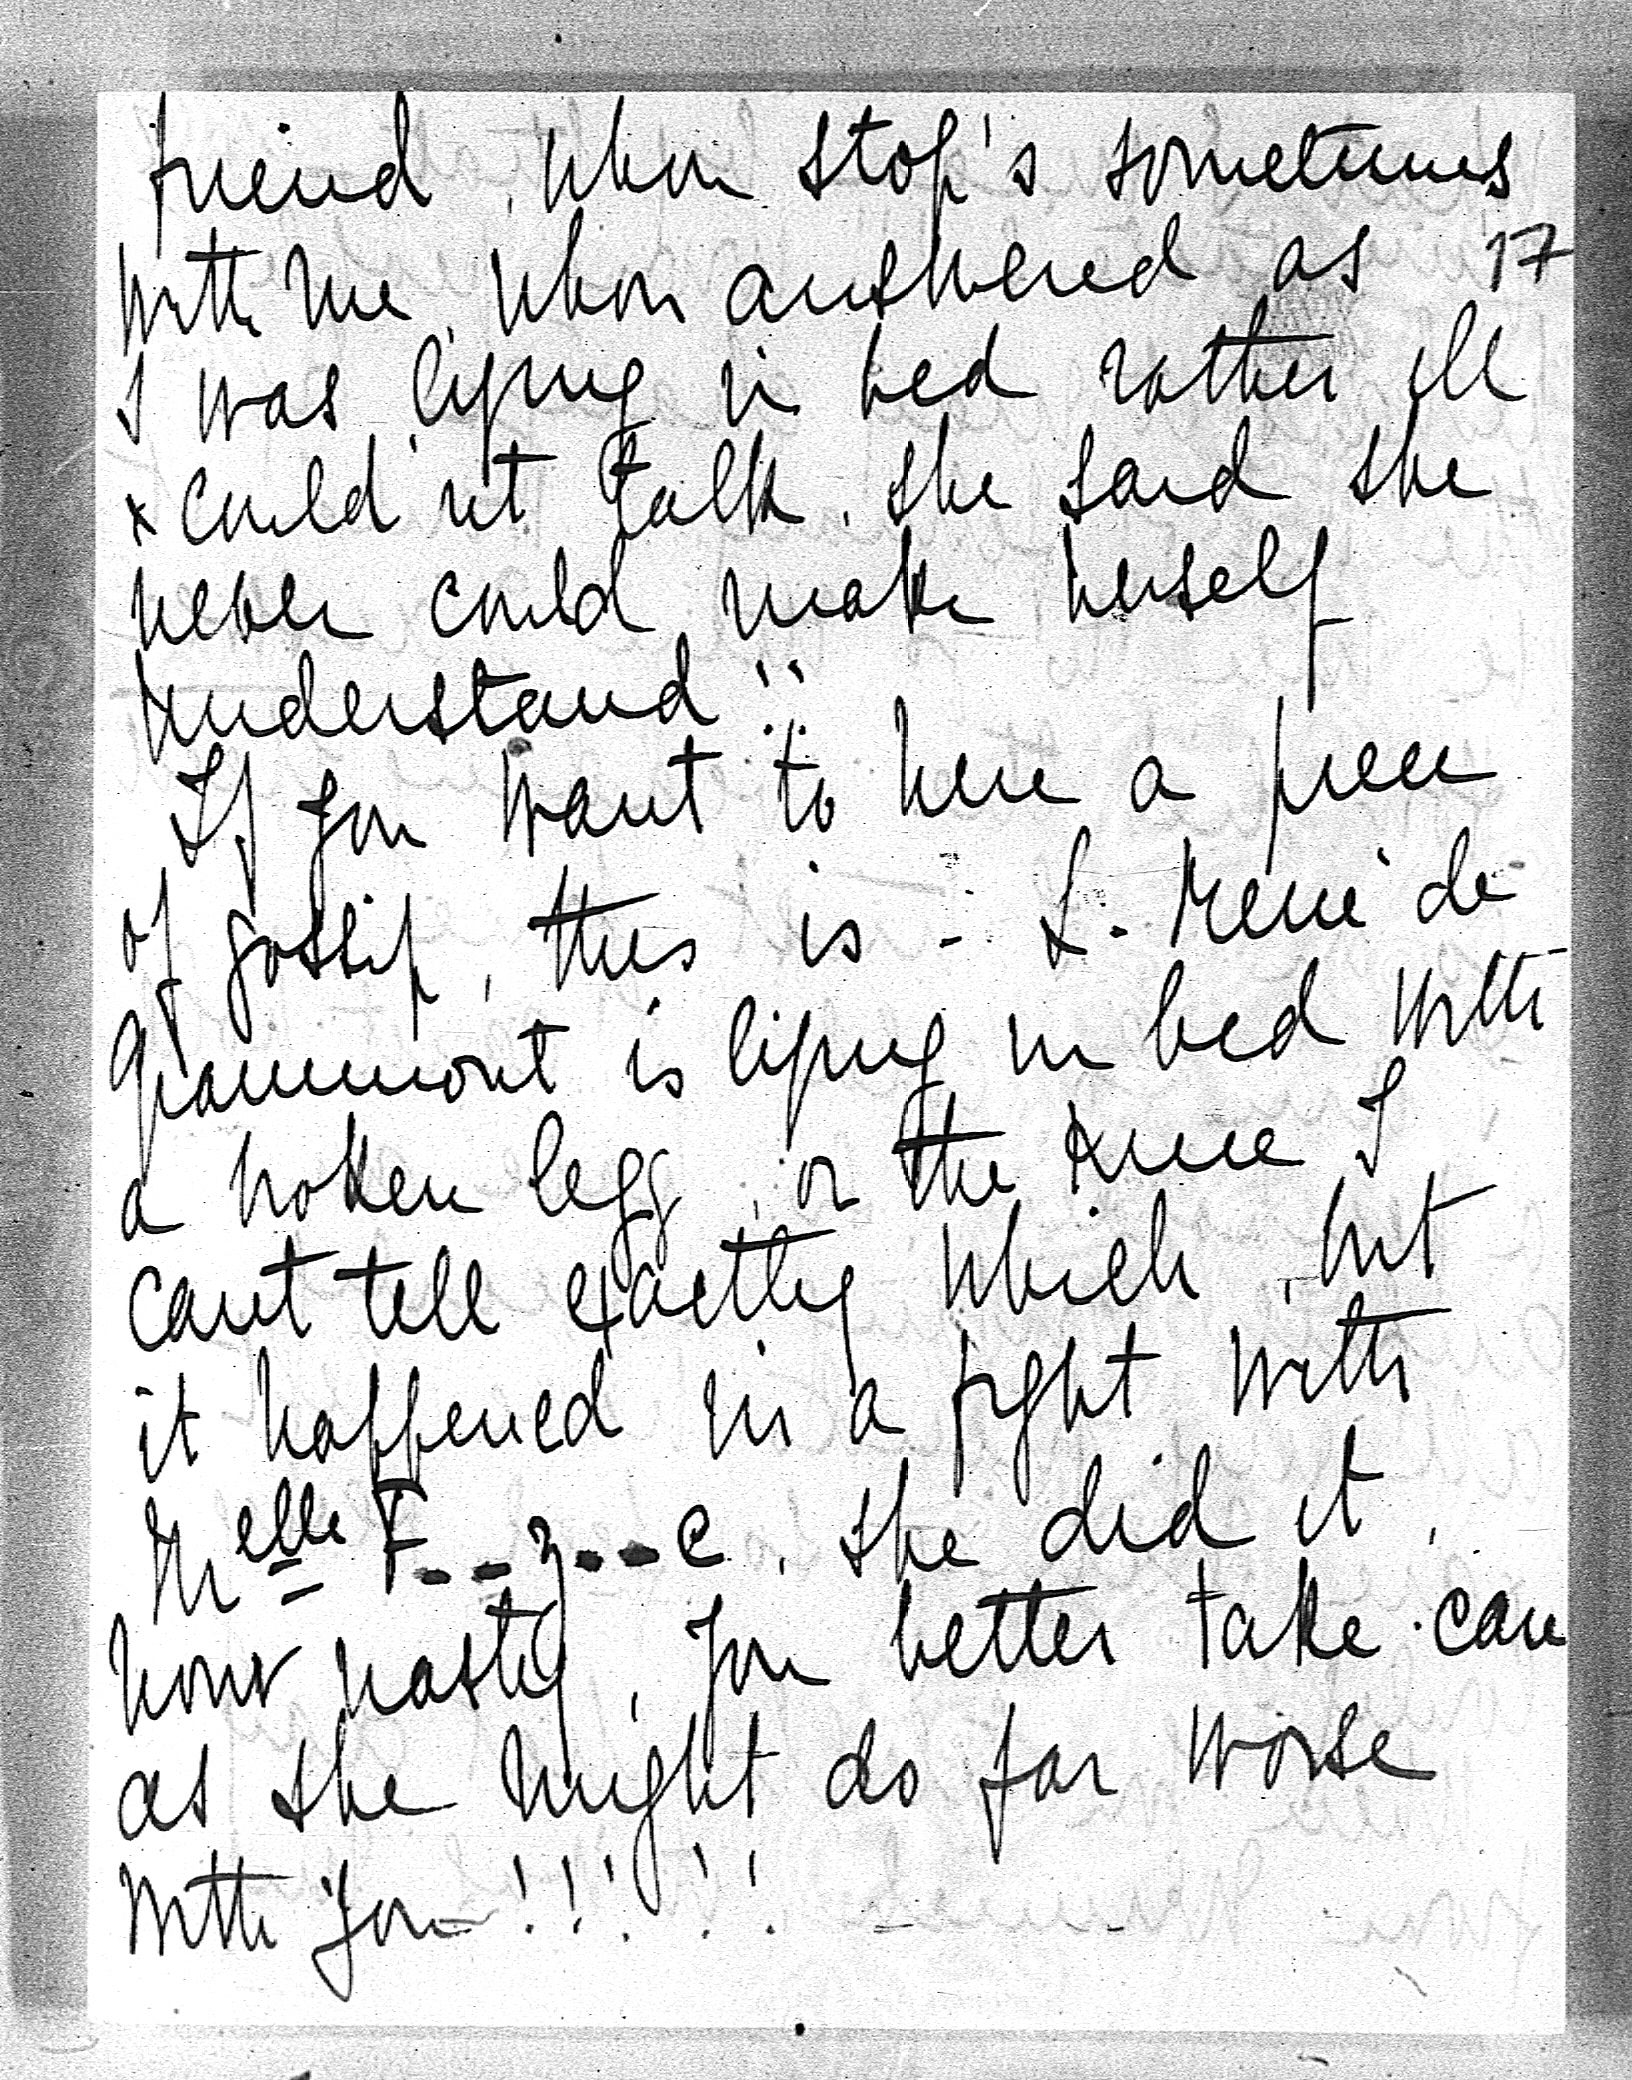 friend, whom stop's sometimes
with me, whom answered as 17
I was lijing in bed rather ill
x could'nt talk, she said she
never could make herself
understand!!
If you want to here a piece
of gossip, this is - L. René de
Grammont is lijing in bed with
a broken legg, or the knee I
can't tell exactly which, but
it happened in a fight with
Melle F--z--e, she did it,
how nasty, you better take care
as she might do far worse
with you!!!!!